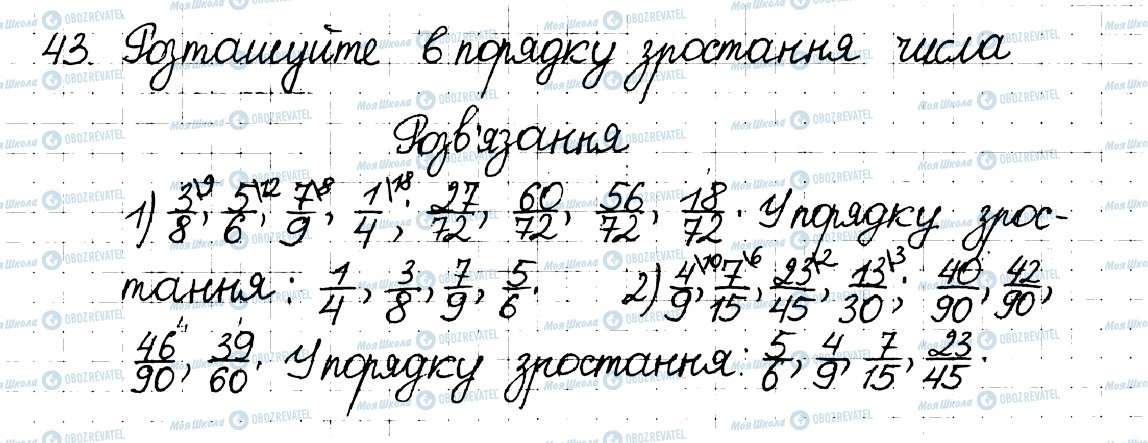 43. Розташуйте в порядку зростання числа
Розв'язання
1) 3/8\9, 5/6\12, 7/9\8, 1/4\18; 27/72, 60/72, 56/72, 18/72. У порядку зрос-
тання: 1/4, 3/8, 7/9, 5/6. 2) 4/9\10, 7/15\6, 23/45\2, 13/30\3; 40/90, 42/90,
46/90, 39/60. У порядку зростання: 5/6, 4/9, 7/15, 23/45.